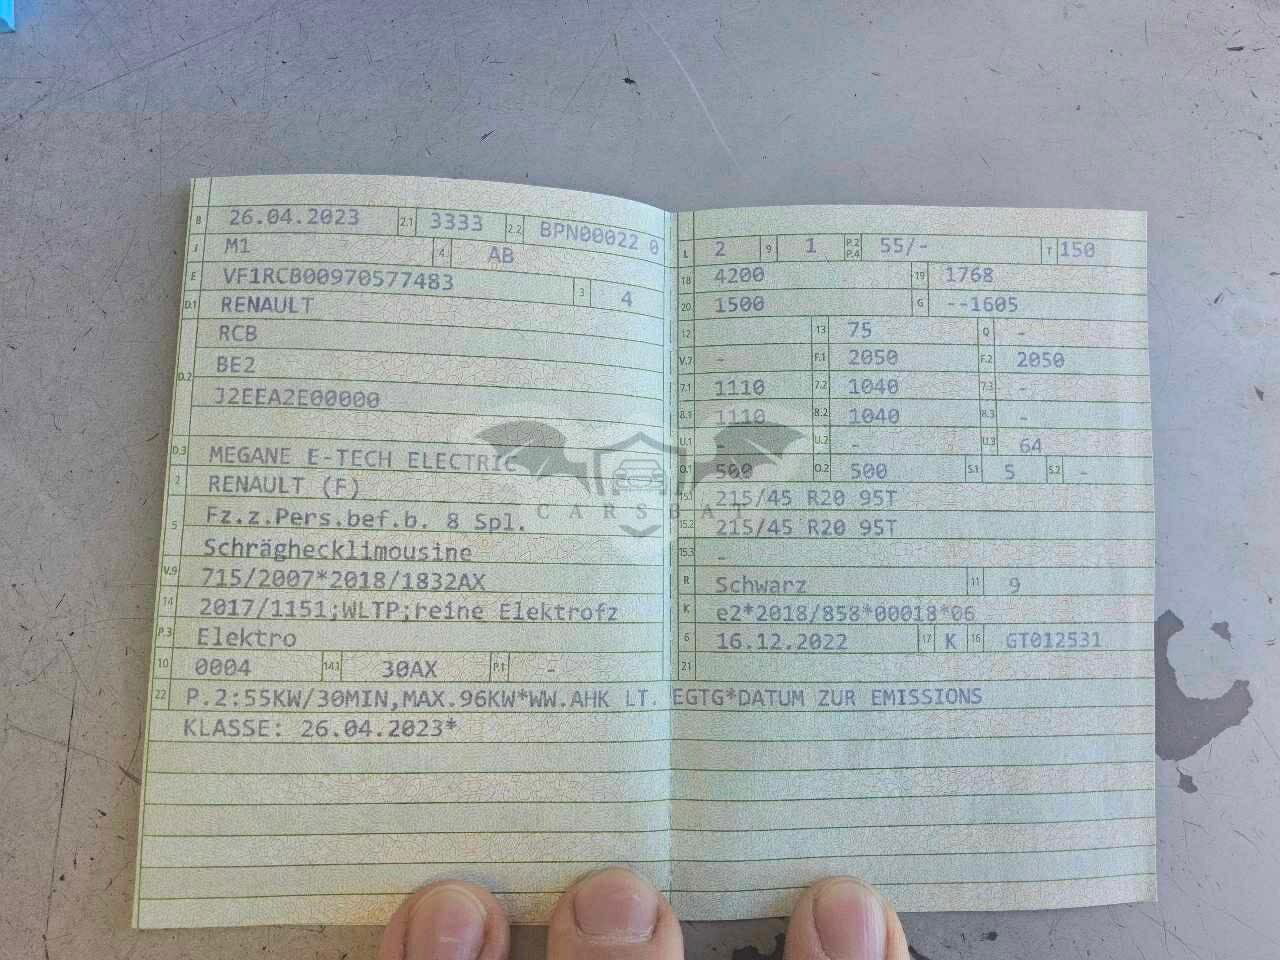 B 26.04.2023 2.1 3333 2.2 BPN00022 0
J M1 4 AB
E VF1RCB00970577483 3 4
D.1 RENAULT
RCB
D.2 BE2
J2EEA2E00000
D.3 MEGANE E-TECH ELECTRIC
2 RENAULT (F)
5 Fz.z.Pers.bef.b. 8 Spl.
Schräghecklimousine
V.9 715/2007*2018/1832AX
14 2017/1151;WLTP;reine Elektrofz
P.3 Elektro
10 0004 14.1 30AX P.1 -
L 2 9 1 P.2 P.4 55/- T 150
18 4200 19 1768
20 1500 G --1605
12 13 75 Q -
V.7 - F.1 2050 F.2 2050
7.1 1110 7.2 1040 7.3 -
8.1 1110 8.2 1040 8.3 -
U.1 - U.2 - U.3 64
O.1 500 O.2 500 S.1 5 S.2 -
15.1 215/45 R20 95T
15.2 215/45 R20 95T
15.3 -
R Schwarz 11 9
K e2*2018/858*00018*06
6 16.12.2022 17 K 16 GT012531
21
22 P.2:55KW/30MIN,MAX.96KW*WW.AHK LT. EGTG*DATUM ZUR EMISSIONS
KLASSE: 26.04.2023*
CARSBAT